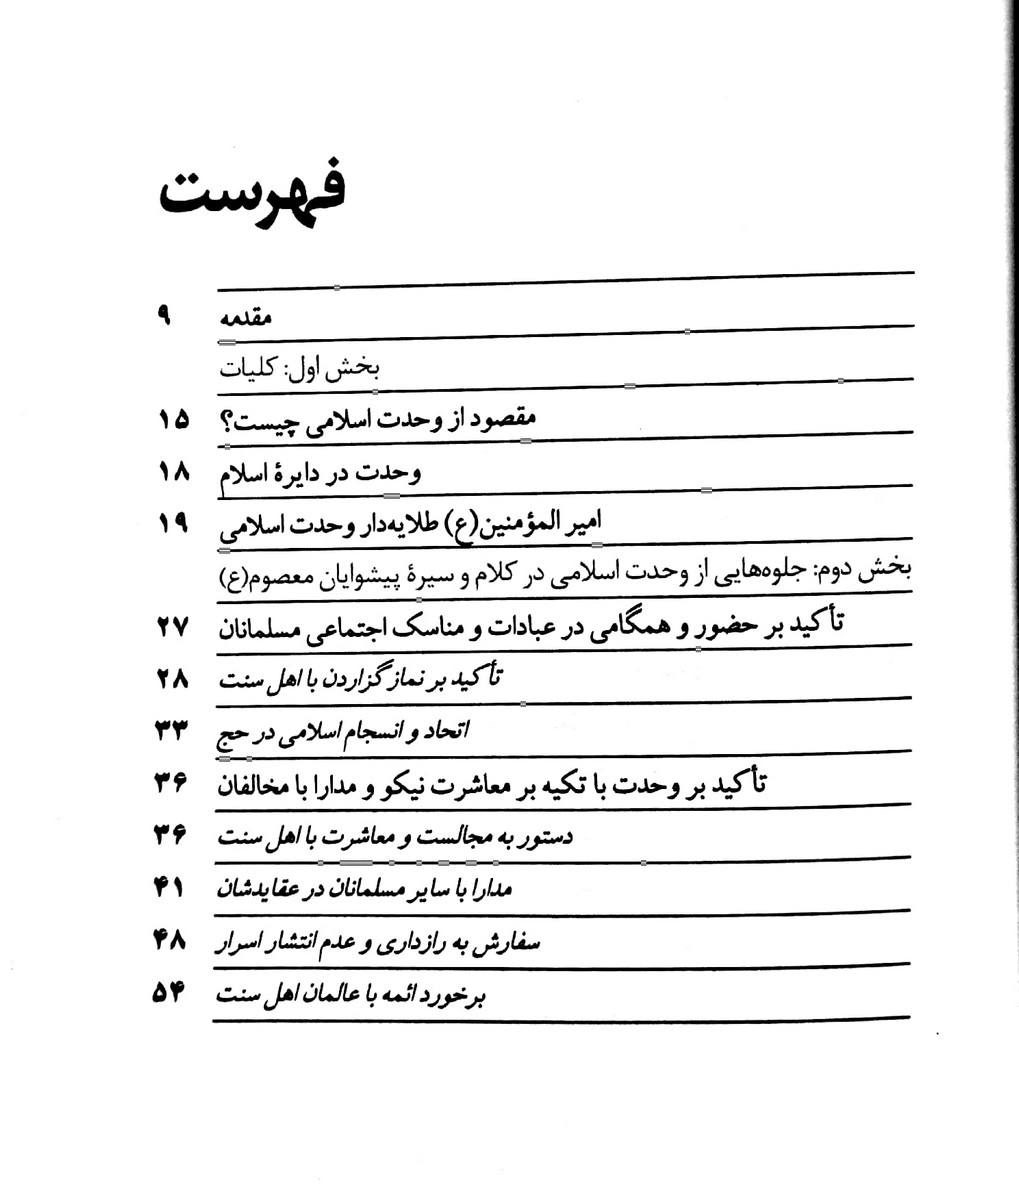 فهرست
مقدمه ۹
بخش اول: کلیات
مقصود از وحدت اسلامی چیست؟ ۱۵
وحدت در دایرهٔ اسلام ۱۸
امیر المؤمنین(ع) طلایه‌دار وحدت اسلامی ۱۹
بخش دوم: جلوه‌هایی از وحدت اسلامی در کلام و سیرهٔ پیشوایان معصوم(ع)
تأکید بر حضور و همگامی در عبادات و مناسک اجتماعی مسلمانان ۲۷
تأکید بر نماز گزاردن با اهل سنت ۲۸
اتحاد و انسجام اسلامی در حج ۳۳
تأکید بر وحدت با تکیه بر معاشرت نیکو و مدارا با مخالفان ۳۶
دستور به مجالست و معاشرت با اهل سنت ۳۶
مدارا با سایر مسلمانان در عقایدشان ۴۱
سفارش به رازداری و عدم انتشار اسرار ۴۸
برخورد ائمه با عالمان اهل سنت ۵۴